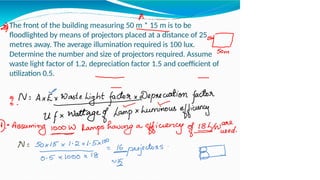 The front of the building measuring 50 m * 15 m is to be
floodlighted by means of projectors placed at a distance of 25
metres away. The average illumination required is 100 lux.
Determine the number and size of projectors required. Assume
waste light factor of 1.2, depreciation factor 1.5 and coefficient of
utilization 0.5.
50m
N: A×E× Waste Light factor × Depreciation factor
U f × Wattage of Lamp × Luminous efficiency
Assuming 1000 W Lamps having a efficiency of 18 L/W are
used.
N = 50×15 × 1.2 × 1.5×100 = 16 projectors.
0.5 × 1000 × 18